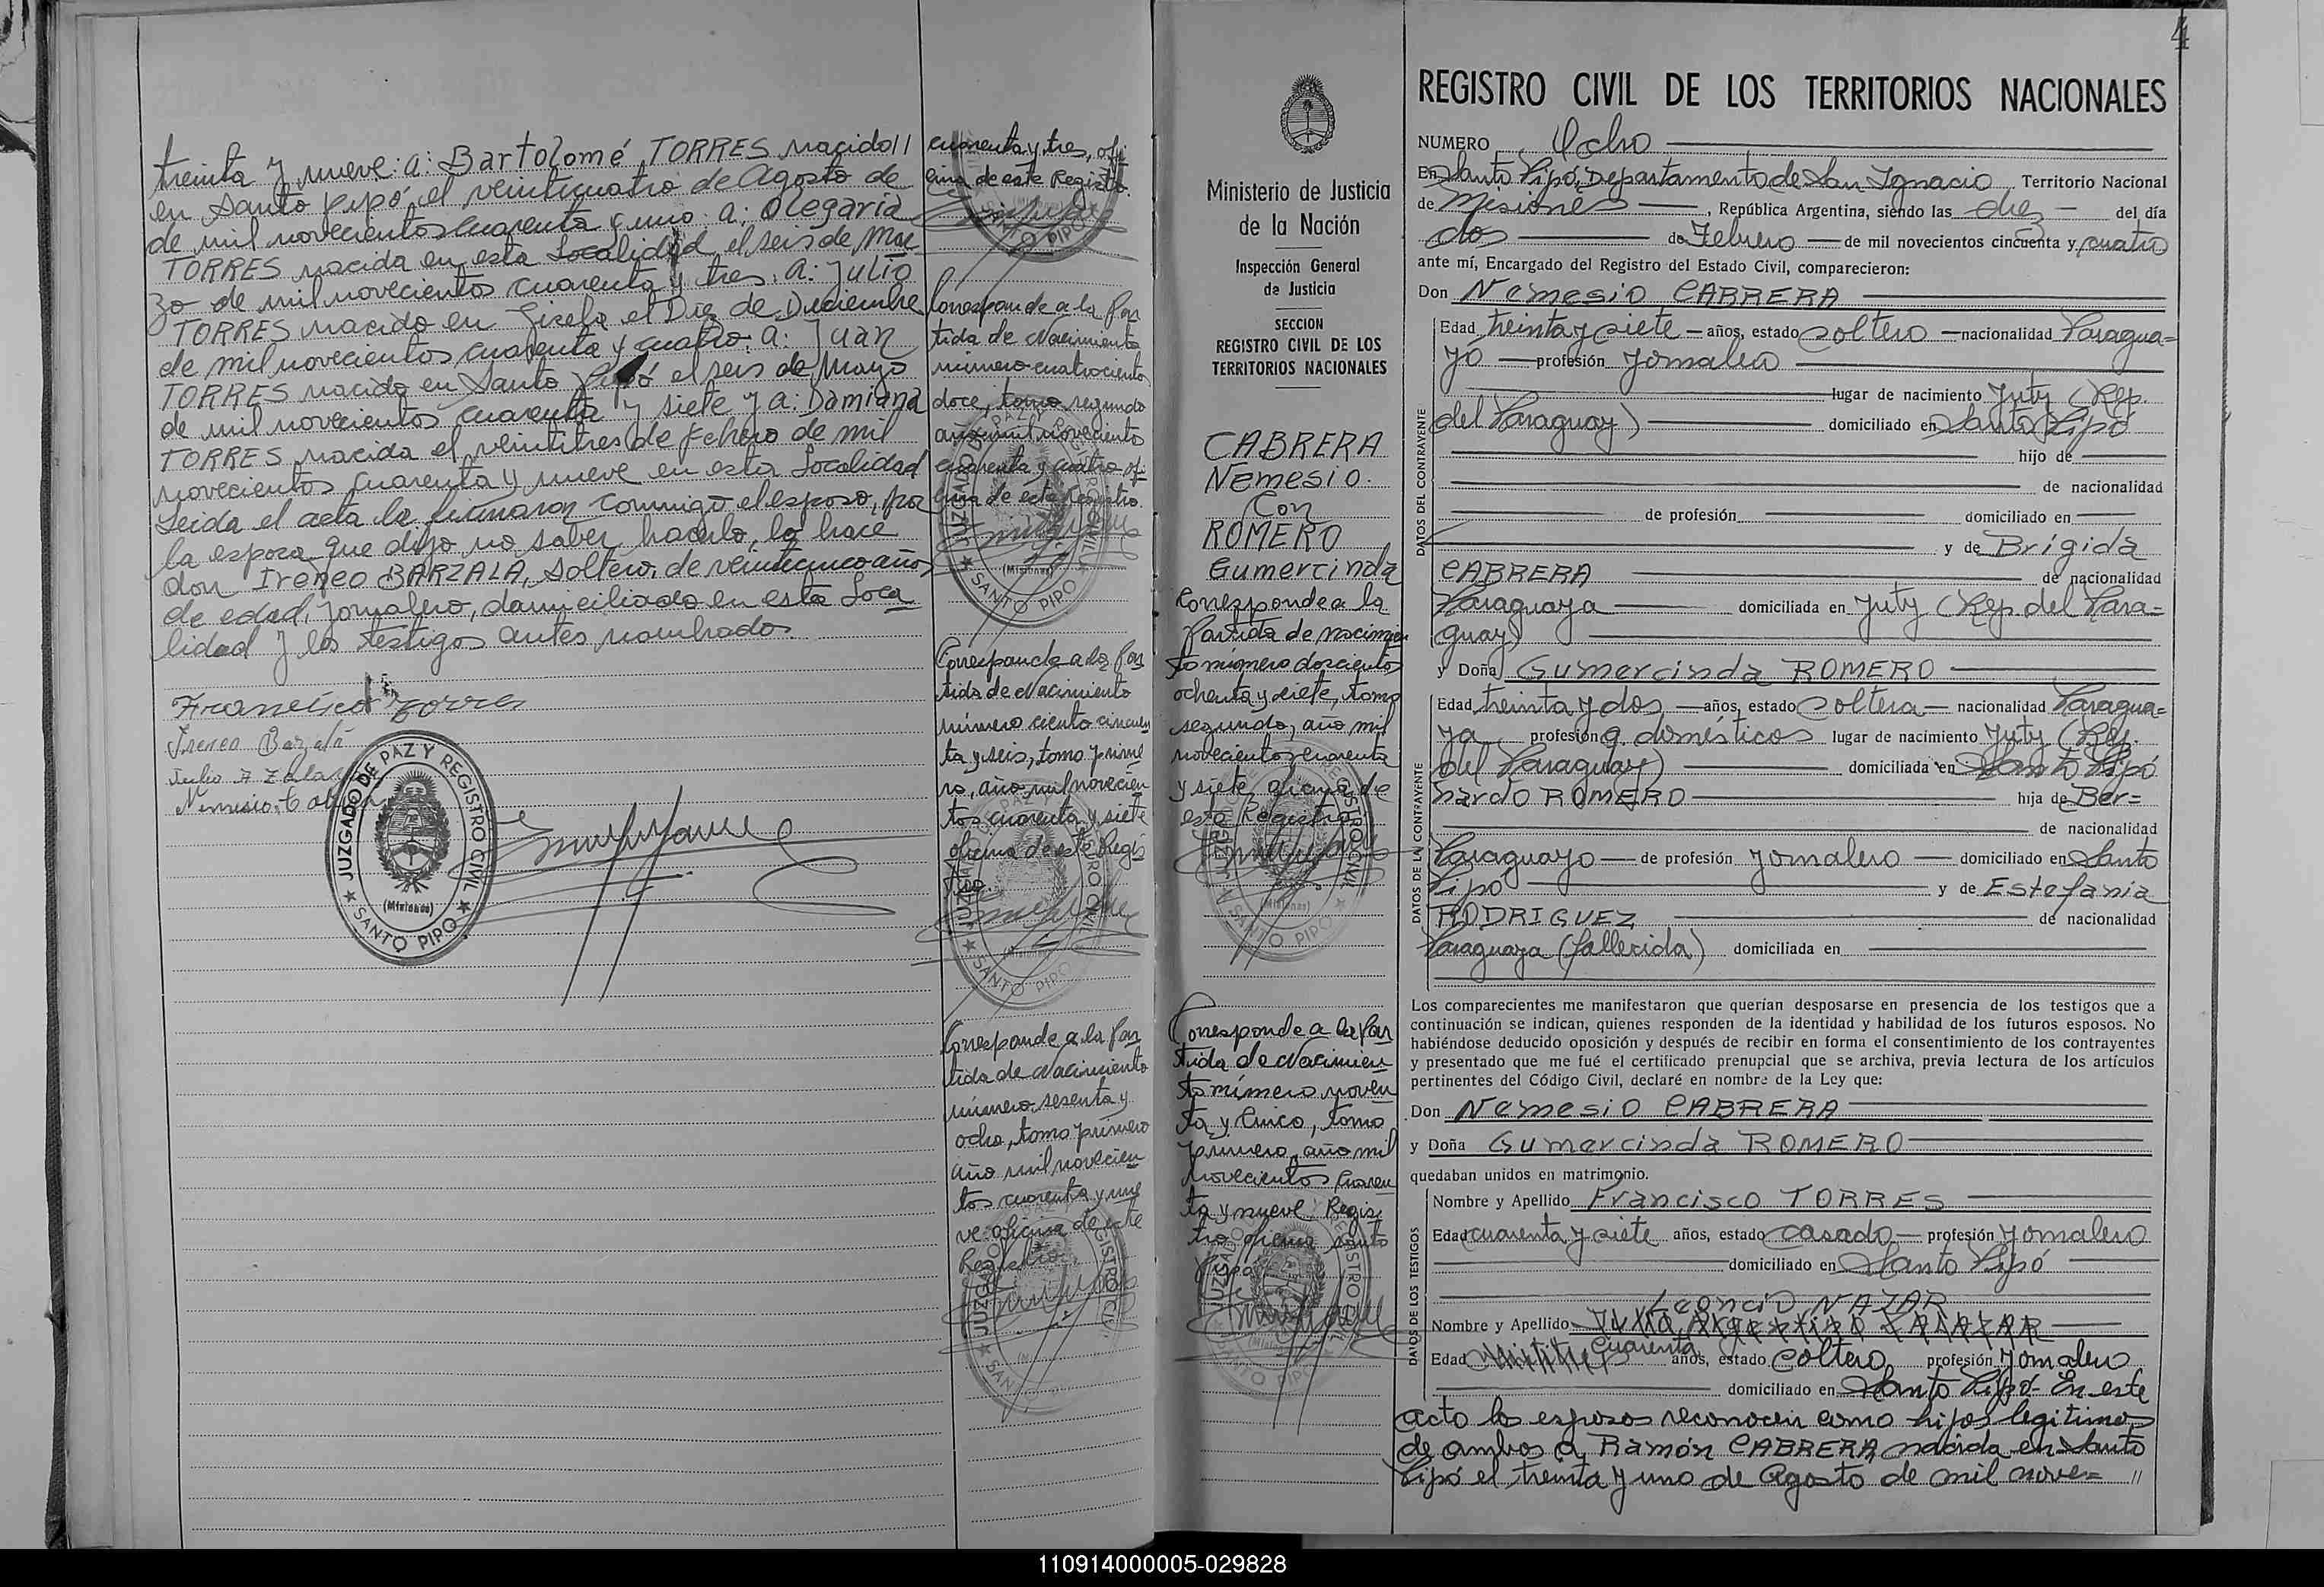 treinta y nueve: a: Bartolomé TORRES nacido //
en Santo Pipó, el veinticuatro de Agosto de
de mil novecientos cuarenta y uno: a: Olegaria
TORRES nacida en esta Localidad el seis de Mar
zo de mil novecientos cuarenta y tres: a: Julio
TORRES nacido en Gisela el Diez de Diciembre
de mil novecientos cuarenta y cuatro: a: Juan
TORRES nacido en Santo Pipó el seis de Mayo
de mil novecientos cuarenta y siete y a: Damiana
TORRES nacida el veintitres de Febrero de mil
novecientos cuarenta y nueve en esta Localidad
Leida el acta la firmaron conmigo el esposo, por
la esposa que dijo no saber hacerlo, lo hace
don Ireneo BARZALA, soltero, de veinticinco años
de edad, jornalero, domiciliado en esta Loca
lidad y los testigos antes nombrados
Francisco Torres
Ireneo Barzala
Julio A Zalazar
Nemesio
JUZGADO DE PAZ Y REGISTRO CIVIL
(Misiones)
SANTO PIPO
cuarenta y tres, ofi
cina de este Registro.
Corresponde a la Par
tida de Nacimiento
número cuatrocientos
doce, tomo segundo
año mil novecientos
cuarenta y cuatro ofi
cina de este Registro.
Corresponde a la Par
tida de Nacimiento
número ciento cincuen
ta y seis, tomo prime
ro, año mil novecien
tos cuarenta y siete
oficina de este Regis
tro.
Corresponde a la Par
tida de Nacimiento
número sesenta y
ocho, tomo primero
año mil novecien
tos cuarenta y nue
ve oficina de este
Registro.
Ministerio de Justicia
de la Nación
Inspección General
de Justicia
SECCION
REGISTRO CIVIL DE LOS
TERRITORIOS NACIONALES
CABRERA
Nemesio.
Con
ROMERO
Gumercinda
Corresponde a la
Partida de nacimien
to número doscientos
ochenta y siete, tomo
segundo, año mil
novecientos cuarenta
y siete, oficina de
este Registro
Corresponde a la Par
tida de Nacimien
to número noven
ta y Cinco, tomo
primero, año mil
novecientos Cuaren
ta y nueve. Regis
tro oficina Santo
Pipó
4
REGISTRO CIVIL DE LOS TERRITORIOS NACIONALES
NUMERO Ocho
En Santo Pipó, Departamento de San Ignacio, Territorio Nacional
de Misiones, República Argentina, siendo las diez del día
dos de Febrero de mil novecientos cincuenta y cuatro
ante mí, Encargado del Registro del Estado Civil, comparecieron:
Don Nemesio CABRERA
DATOS DEL CONTRAYENTE
Edad treinta y siete años, estado soltero nacionalidad Paragua=
yo profesión Jornalero
lugar de nacimiento Juty (Rep.
del Paraguay) domiciliado en Santo Pipó
hijo de
de nacionalidad
de profesión domiciliado en
y de Brígida
CABRERA de nacionalidad
Paraguaya domiciliada en Juty (Rep. del Para=
guay)
y Doña Gumercinda ROMERO
DATOS DE LA CONTRAYENTE
Edad treinta y dos años, estado soltera nacionalidad Paragua=
ya profesión q. domésticos lugar de nacimiento Juty (Rep.
del Paraguay) domiciliada en Santo Pipó
nardo ROMERO hija de Ber=
de nacionalidad
Paraguayo de profesión Jornalero domiciliado en Santo
Pipó y de Estefania
RODRIGUEZ de nacionalidad
Paraguaya (fallecida) domiciliada en
Los comparecientes me manifestaron que querían desposarse en presencia de los testigos que a
continuación se indican, quienes responden de la identidad y habilidad de los futuros esposos. No
habiéndose deducido oposición y después de recibir en forma el consentimiento de los contrayentes
y presentado que me fué el certificado prenupcial que se archiva, previa lectura de los artículos
pertinentes del Código Civil, declaré en nombre de la Ley que:
Don Nemesio CABRERA
y Doña Gumercinda ROMERO
quedaban unidos en matrimonio.
DATOS DE LOS TESTIGOS
Nombre y Apellido Francisco TORRES
Edad cuarenta y siete años, estado casado profesión Jornalero
domiciliado en Santo Pipó
Leoncio NAZAR
Nombre y Apellido Julio Argentino ZALAZAR
Cuarenta
Edad años, estado soltero profesión Jornalero
domiciliado en Santo Pipó. En este
acto los esposos reconocen como hijos legitimos
de ambos a Ramón CABRERA nacida en Santo
Pipó el treinta y uno de Agosto de mil nove= //
110914000005-029828